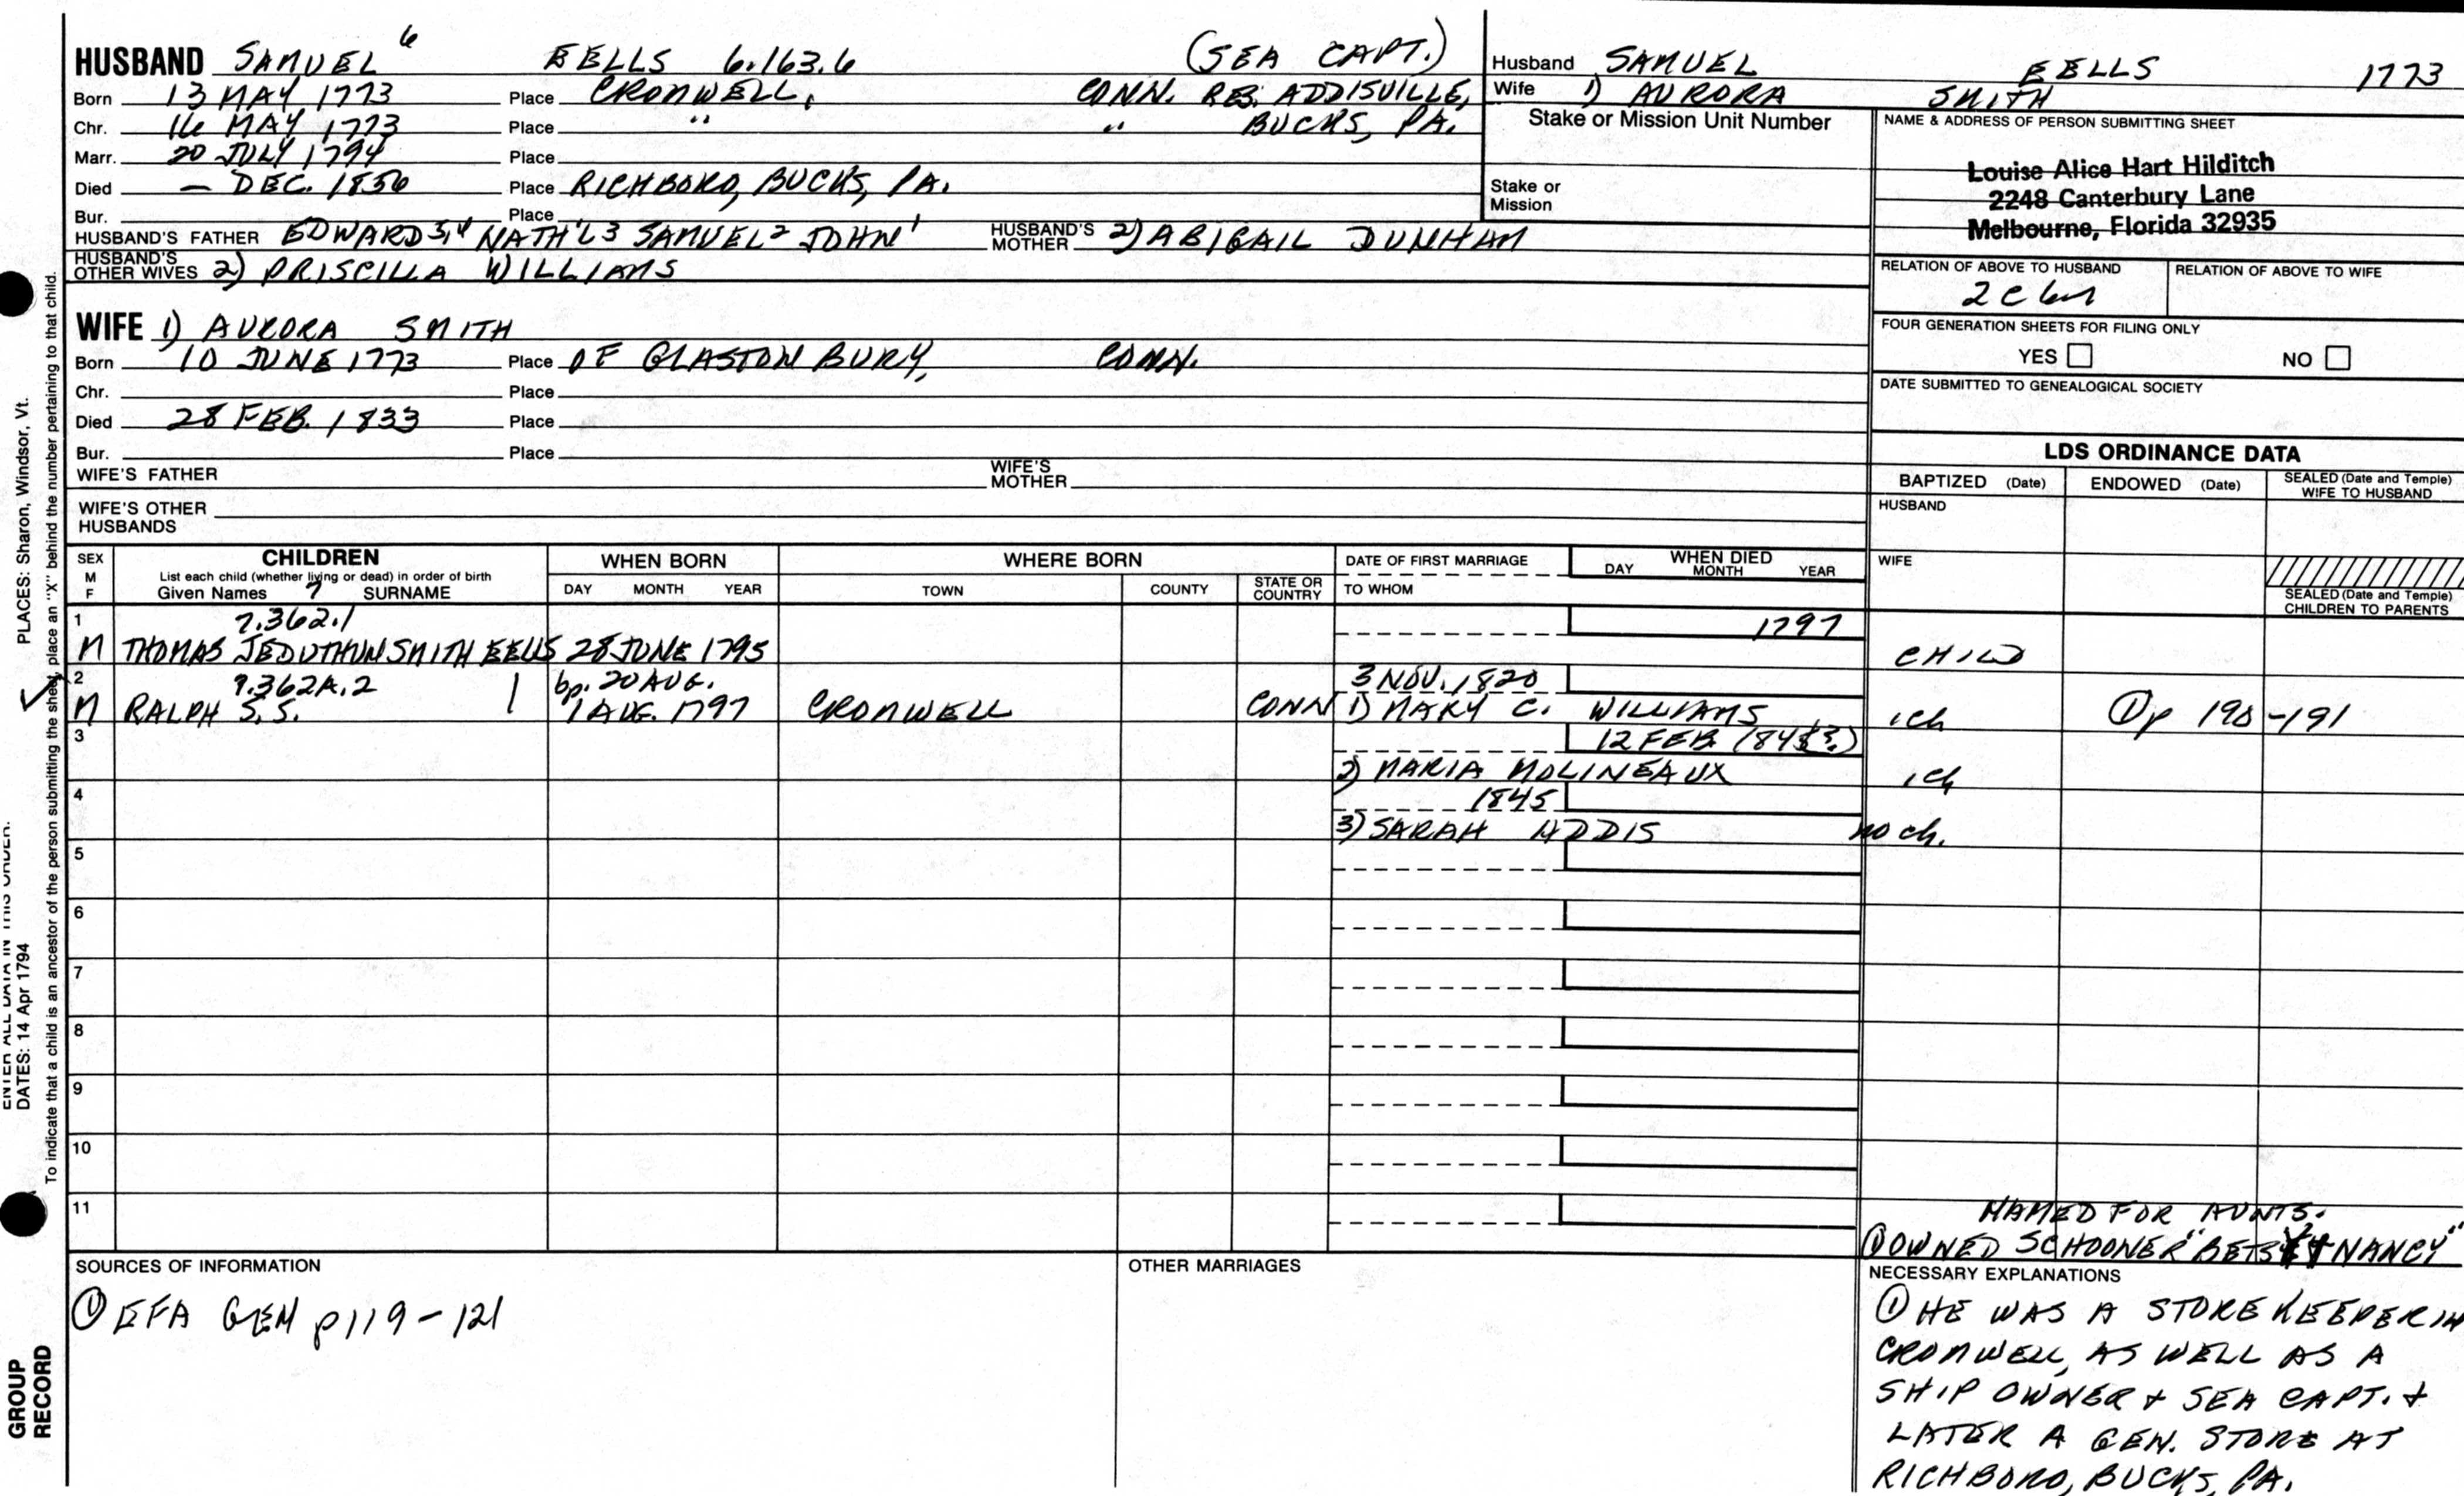 HUSBAND SAMUEL 6 EELLS 6.163.6 (SEA CAPT.)
Born 13 MAY 1773 Place CROMWELL, CONN. RES. ADDISVILLE,
Chr. 16 MAY 1773 Place " " BUCKS, PA.
Marr. 20 JULY 1794 Place
Died — DEC. 1856 Place RICHBORO, BUCKS, PA.
Bur. Place
HUSBAND'S FATHER EDWARD 5,4 NATH'L 3 SAMUEL 2 JOHN 1 HUSBAND'S MOTHER 2) ABIGAIL DUNHAM
HUSBAND'S OTHER WIVES 2) PRISCILLA WILLIAMS
WIFE 1) AURORA SMITH
Born 10 JUNE 1773 Place OF GLASTONBURY, CONN.
Chr. Place
Died 28 FEB. 1833 Place
Bur. Place
WIFE'S FATHER WIFE'S MOTHER
WIFE'S OTHER HUSBANDS
Husband SAMUEL EELLS 1773
Wife 1) AURORA SMITH
Stake or Mission Unit Number
Stake or Mission
NAME & ADDRESS OF PERSON SUBMITTING SHEET
Louise Alice Hart Hilditch
2248 Canterbury Lane
Melbourne, Florida 32935
RELATION OF ABOVE TO HUSBAND RELATION OF ABOVE TO WIFE
2 c
FOUR GENERATION SHEETS FOR FILING ONLY
YES NO
DATE SUBMITTED TO GENEALOGICAL SOCIETY
LDS ORDINANCE DATA
BAPTIZED (Date) ENDOWED (Date) SEALED (Date and Temple) WIFE TO HUSBAND
HUSBAND
WIFE
SEALED (Date and Temple) CHILDREN TO PARENTS
SEX M F
CHILDREN
List each child (whether living or dead) in order of birth
Given Names 7 SURNAME
WHEN BORN
DAY MONTH YEAR
WHERE BORN
TOWN COUNTY STATE OR COUNTRY
DATE OF FIRST MARRIAGE
TO WHOM
WHEN DIED
DAY MONTH YEAR
1 7.362.1 1797
M THOMAS JEDUTHUN SMITH EELLS 28 JUNE 1795 CHILD
2 7.362A.2 bp. 20 AUG. 3 NOV. 1820
M RALPH S. S. 1 1 AUG. 1797 CROMWELL CONN 1) MARY C. WILLIAMS 1 ch ① p 190-191
3 12 FEB. 184 (3?)
2) MARIA MOLINEAUX 1 ch
4 1845
3) SARAH ADDIS no ch.
5
6
7
8
9
10
11
NAMED FOR AUNTS.
① OWNED SCHOONER "BETSY & NANCY"
SOURCES OF INFORMATION
① EFA GEN p119-121
OTHER MARRIAGES
NECESSARY EXPLANATIONS
① HE WAS A STOREKEEPER IN
CROMWELL, AS WELL AS A
SHIP OWNER + SEA CAPT. +
LATER A GEN. STORE AT
RICHBORO, BUCKS, PA.
PLACES: Sharon, Windsor, Vt.
ENTER ALL DATA IN THIS ORDER:
DATES: 14 Apr 1794
To indicate that a child is an ancestor of the person submitting the sheet, place an "X" behind the number pertaining to that child.
GROUP
RECORD